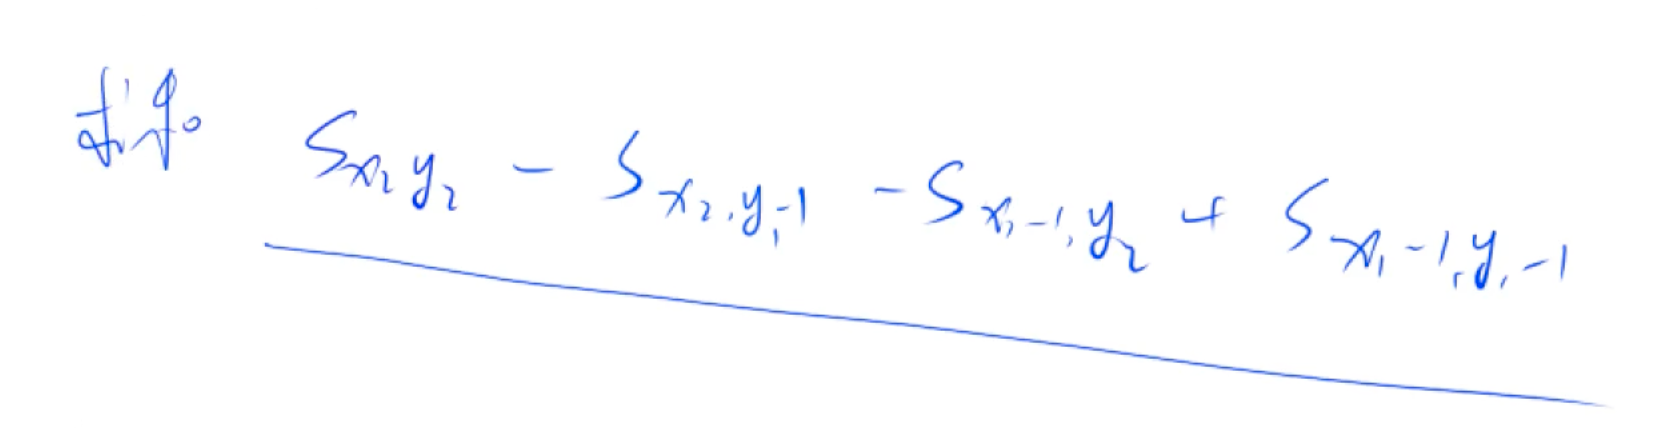 求和 S_{x₂y₂} - S_{x₂,y₁-1} - S_{x₁-1,y₂} + S_{x₁-1,y₁-1}